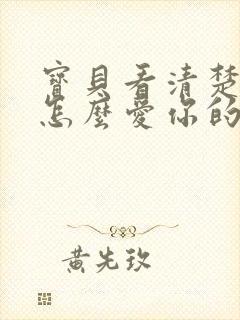 寶貝看清楚
怎麼愛你的
黃先玫